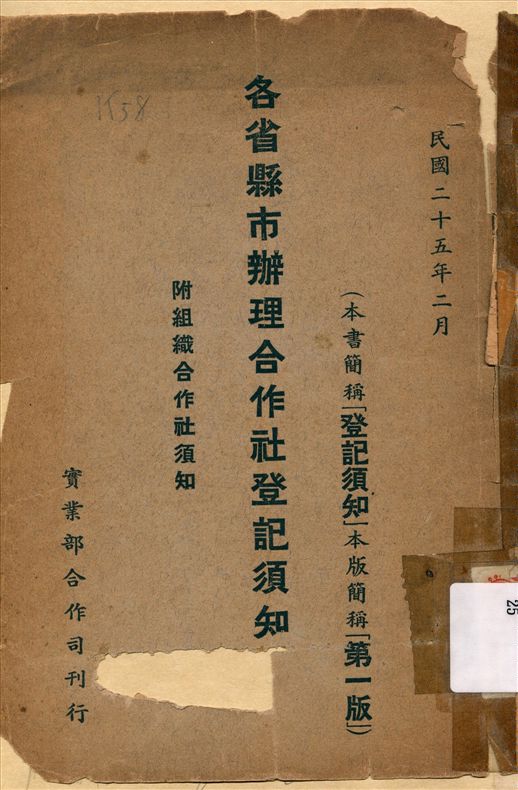 民國二十五年二月
（本書簡稱「登記須知」本版簡稱「第一版」）
各省縣市辦理合作社登記須知
附組織合作社須知
實業部合作司刊行
1558
25